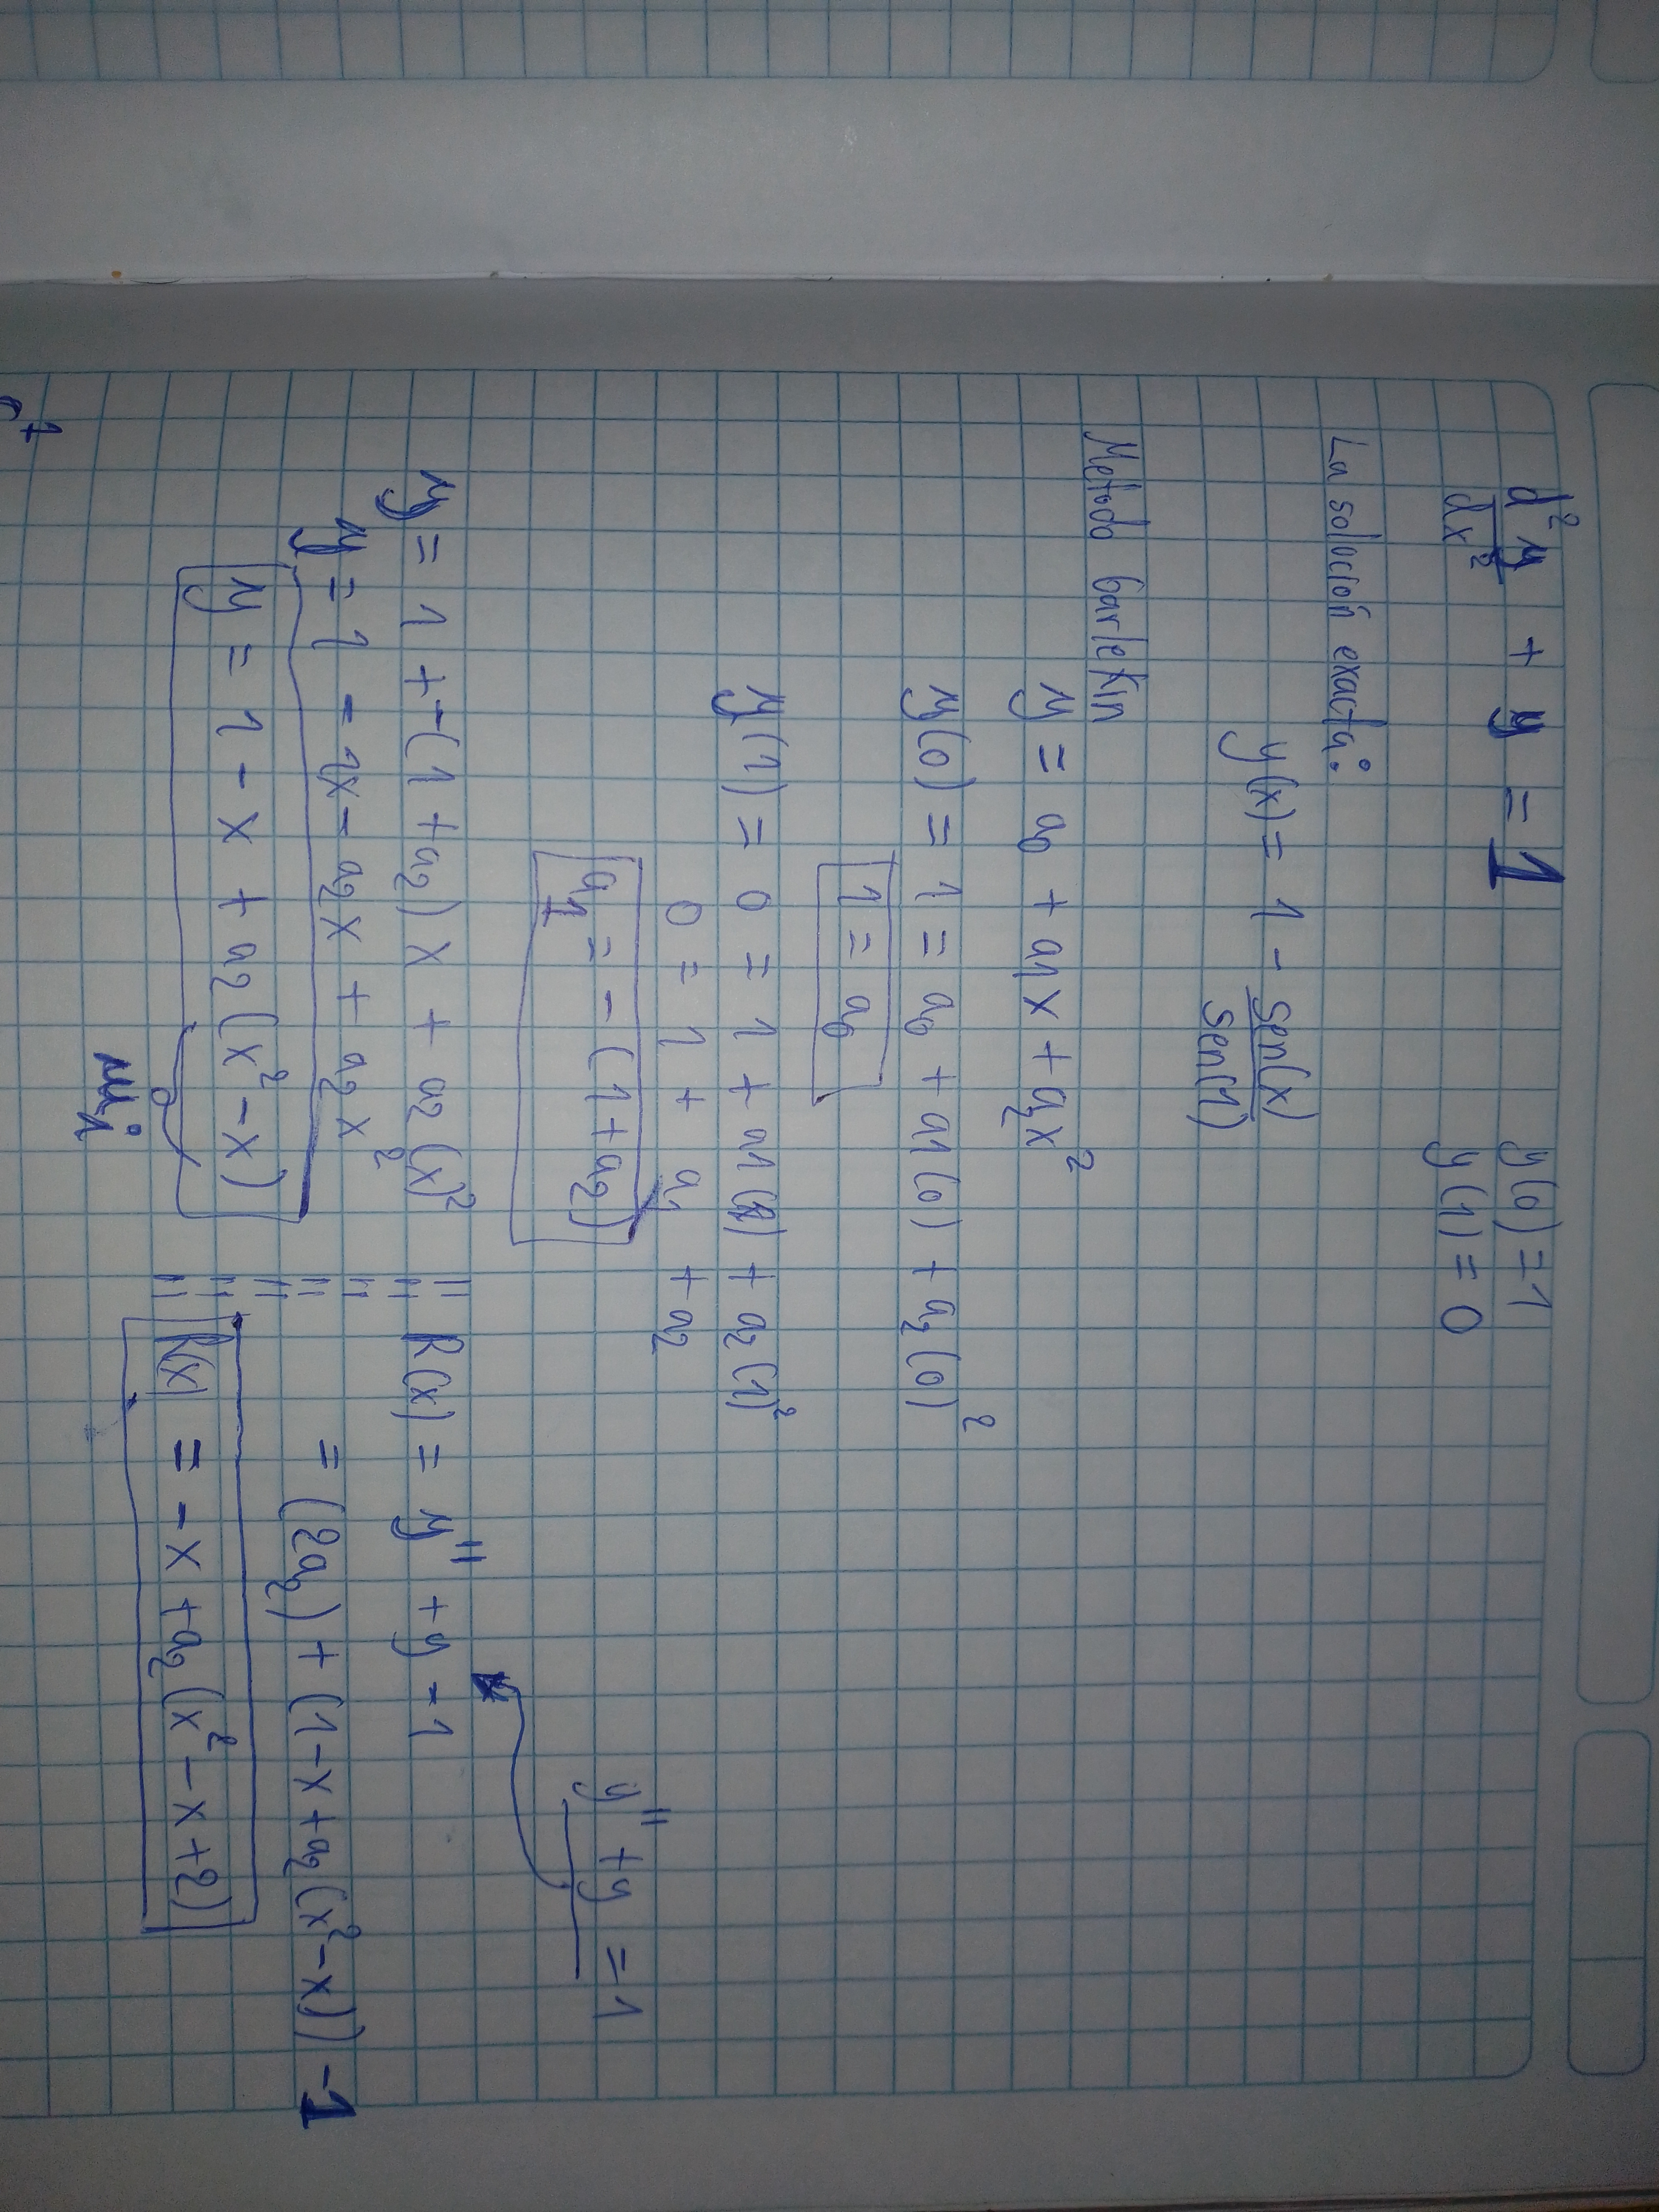 d²y/dx² + y = 1    y(0) = 1
y(1) = 0
La solución exacta:
y(x) = 1 - sen(x)/sen(1)
Metodo Garlekin
y = a0 + a1x + a2x²
y(0) = 1 = a0 + a1(0) + a2(0)²
1 = a0
y(1) = 0 = 1 + a1(1) + a2(1)²
0 = 1 + a1 + a2
y'' + y = 1
a1 = -(1 + a2)
y = 1 + -(1 + a2)x + a2(x)²    R(x) = y'' + y - 1
y = 1 - 1x - a2x + a2x²    = (2a2) + (1 - x + a2(x² - x)) - 1
y = 1 - x + a2(x² - x)    R(x) = -x + a2(x² - x + 2)